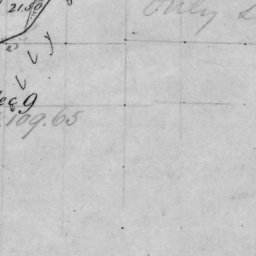 2150
Only
ec 9
109.65